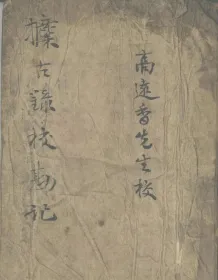 高延香先生校
攗古錄校勘記